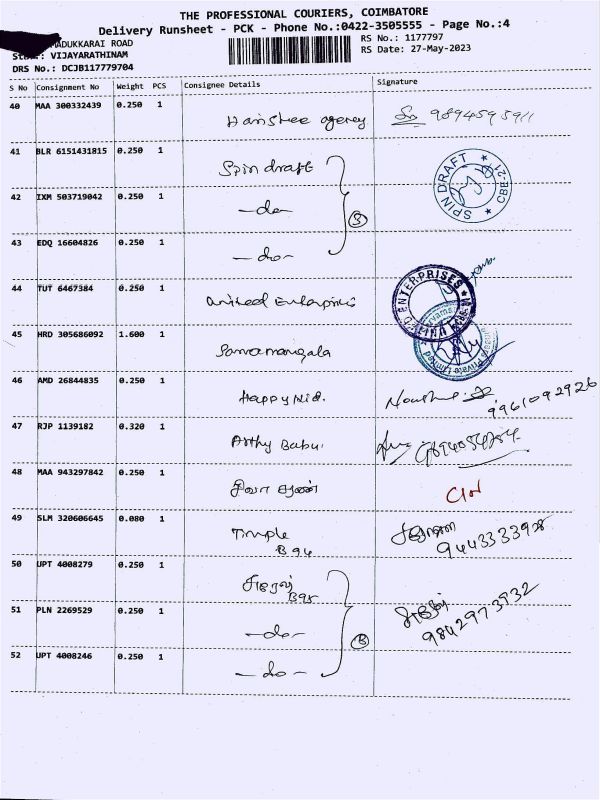 THE PROFESSIONAL COURIERS, COIMBATORE
Delivery Runsheet - PCK - Phone No.:0422-3505555 - Page No.:4
MADUKKARAI ROAD
RS No.: 1177797
VIJAYARATHINAM
RS Date: 27-May-2023
DRS No.: DCJB117779704
S No Consignment No Weight PCS Consignee Details Signature
40 MAA 300332439 0.250 1 Harishree agency 9894595911
41 BLR 6151431815 0.250 1 Spin draft
SPIN DRAFT ★ CBE-21 ★
42 IXM 503719042 0.250 1 -do- 3
43 EDQ 16604826 0.250 1 -do-
44 TUT 6467384 0.250 1 United Enterprises
UNITED ENTERPRISES
45 HRD 305686092 1.600 1 Sarvamangala
Private Limited
46 AMD 26844835 0.250 1 Happy Kid. 9961092926
47 RJP 1139182 0.320 1 Arthy Babu
48 MAA 943297842 0.250 1 சிவா
49 SLM 320606645 0.080 1 Timple
B 94
9443333928
50 UPT 4008279 0.250 1
B95
51 PLN 2269529 0.250 1 -do- 3 9842973932
52 UPT 4008246 0.250 1 -do-